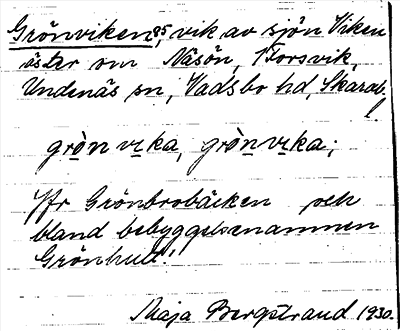 Grönviken 85, vik av sjön Viken
öster om Näsön, i Forsvik,
Undenäs sn, Vadsbo hd, Skarab.
l.
grò̱n vi̱ka, grò̱n vi̱ka;
Jfr Grönbrobäcken och
bland bebyggelsenamnen
Grönhult!
Maja Bergstrand 1930.